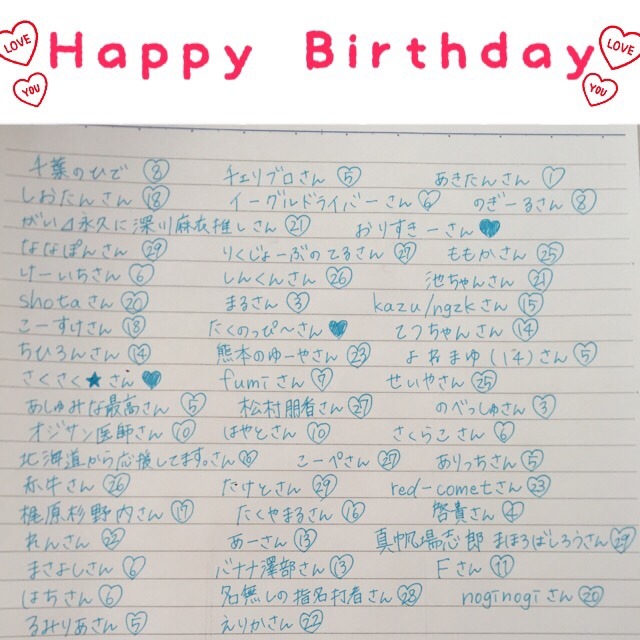 Happy Birthday
LOVE LOVE
YOU YOU
千葉のひで 8 チェリブロさん 5 あきたんさん 1
しおたんさん 18 イーグルドライバーさん 6 のぎーるさん 8
がい⊿永久に深川麻衣推しさん 21 おりすきーさん ♥
ななぽんさん 29 りくじょーぶのてるさん 27 ももかさん 25
けーいちさん 6 しんくんさん 26 池ちゃんさん 21
shotaさん 20 まるさん 3 kazu/ngzkさん 15
こーすけさん 18 たくのっぴ〜さん ♥ てつちゃんさん 14
ちひろんさん 14 熊本のゆーやさん 23 よねまゆ(14)さん 5
さくさく★さん ♥ fumiさん 7 せいやさん 25
あしゅみな最高さん 5 松村朋香さん 27 のべっしゅさん 3
オジサン医師さん 10 はやとさん 10 さくらこさん 6
北海道から応援してます。さん 8 こーぺさん 27 ありっちさん 5
赤牛さん 26 たけとさん 29 red-cometさん 23
梶原杉野内さん 17 たくやまるさん 16 啓貴さん 4
れんさん 22 あーさん 13 真帆場志郎 まほろばしろうさん 29
まさよしさん 6 バナナ澤部さん 13 Fさん 11
はちさん 6 名無しの指名村者さん 28 noginogiさん 20
るみりあさん 5 えりかさん 22